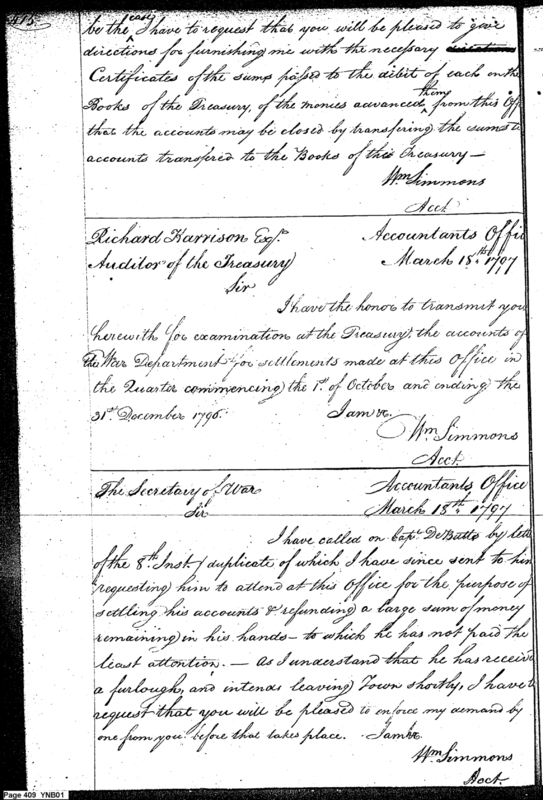 415
case
be the ^ I have to request that you will be pleased to give
directions for furnishing me with the necessary
Certificates of the sums passed to the debit of each on the
them
Books of the Treasury, of the monies advanced ^ from this Off
that the accounts may be closed by transfering the sums to
accounts transfered to the Books of this Treasury —
Wm Simmons
Acct.
Richard Harrison Esqr. Accountants Offic
Auditor of the Treasury March 18th. 1797
Sir
I have the honor to transmit you
herewith for examination at the Treasury, the accounts of
the War Department for settlements made at this Office in
the Quarter commencing the 1st. of October and ending the
31st. December 1796. I am &c.
Wm Simmons
Acct.
The Secretary of War Accountants Office
Sir March 18th. 1797
I have called on Capt. DeButts by lette
of the 8th. Inst. (duplicate of which I have since sent to him
requesting him to attend at this Office for the purpose of
settling his accounts & refunding a large sum of money
remaining in his hands — to which he has not paid the
least attention. — As I understand that he has receive
a furlough, and intends leaving Town shortly, I have t
request that you will be pleased to enforce my demand by
one from you before that takes place. I am &c
Wm Simmons
Acct.
Page 409 YNB01